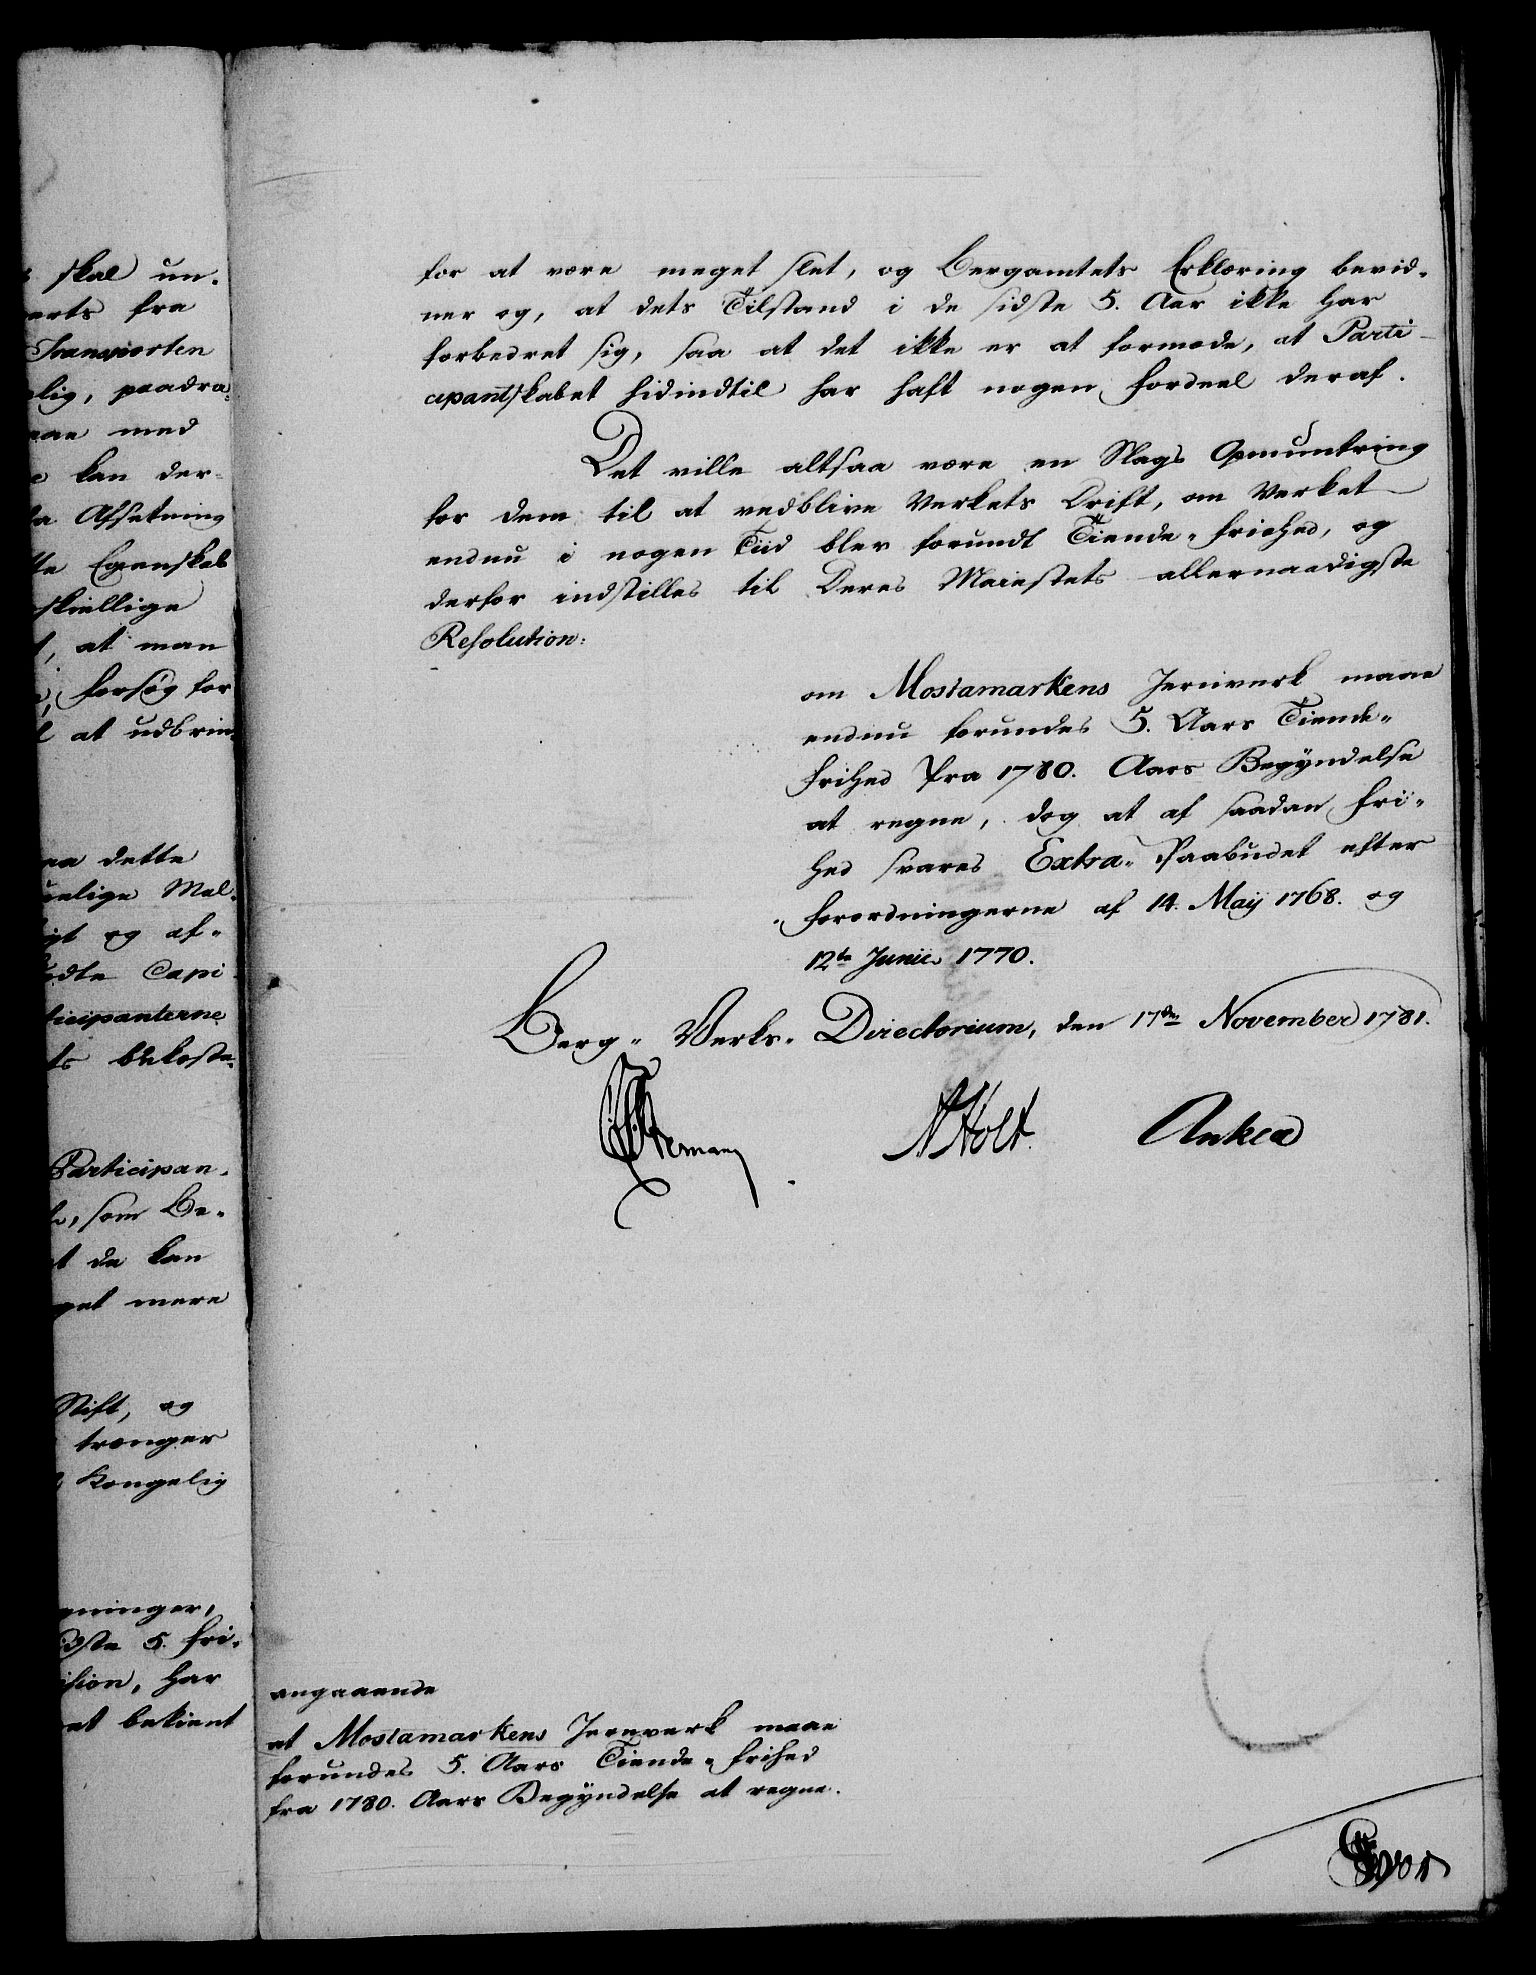 skal un-
fra
Transporten
paadra-
med
kan der-
Afsetning
Egenskab
skiellige
at man
Forsøg for
at udbrin-
dette
Mal-
og af-
Capi-
ticipanterne
bekoste-
Participan-
som Be-
de kan
mere
Stift, og
trænger
Kongelig
gninger,
sidste 5. Fri-
har
bekient
for at være meget slet, og Bergamtets Erklæring bevid-
ner og, at dets Tilstand i de sidste 5. Aar ikke har
forbedret sig, saa at det ikke er at formode, at Parti-
cipantskabet hidindtil har haft nogen Fordeel deraf.
Det ville altsaa være en Slags Opmuntring
for dem til at vedblive Verkets Drift, om Verket
endnu i nogen Tiid blev forundt Tiende-Friehed, og
derfor indstilles til Deres Maiestets allernaadigste
Resolution:
om Mostamarkens Jernverk maae
endnu forundes 5. Aars Tiende-
Frihed fra 1780. Aars Begyndelse
at regne, dog at af saadan Fri-
hed svares Extra-Paabudet efter
Forordningerne af 14. Maij 1768. og
12te Junii 1770.
Berg-Verks-Directorium, den 17den November 1781.
N Holt. Anker
angaaende
at Mostamarkens Jernverk maae
forundes 5. Aars Tiende-Frihed
fra 1780. Aars Begyndelse at regne.